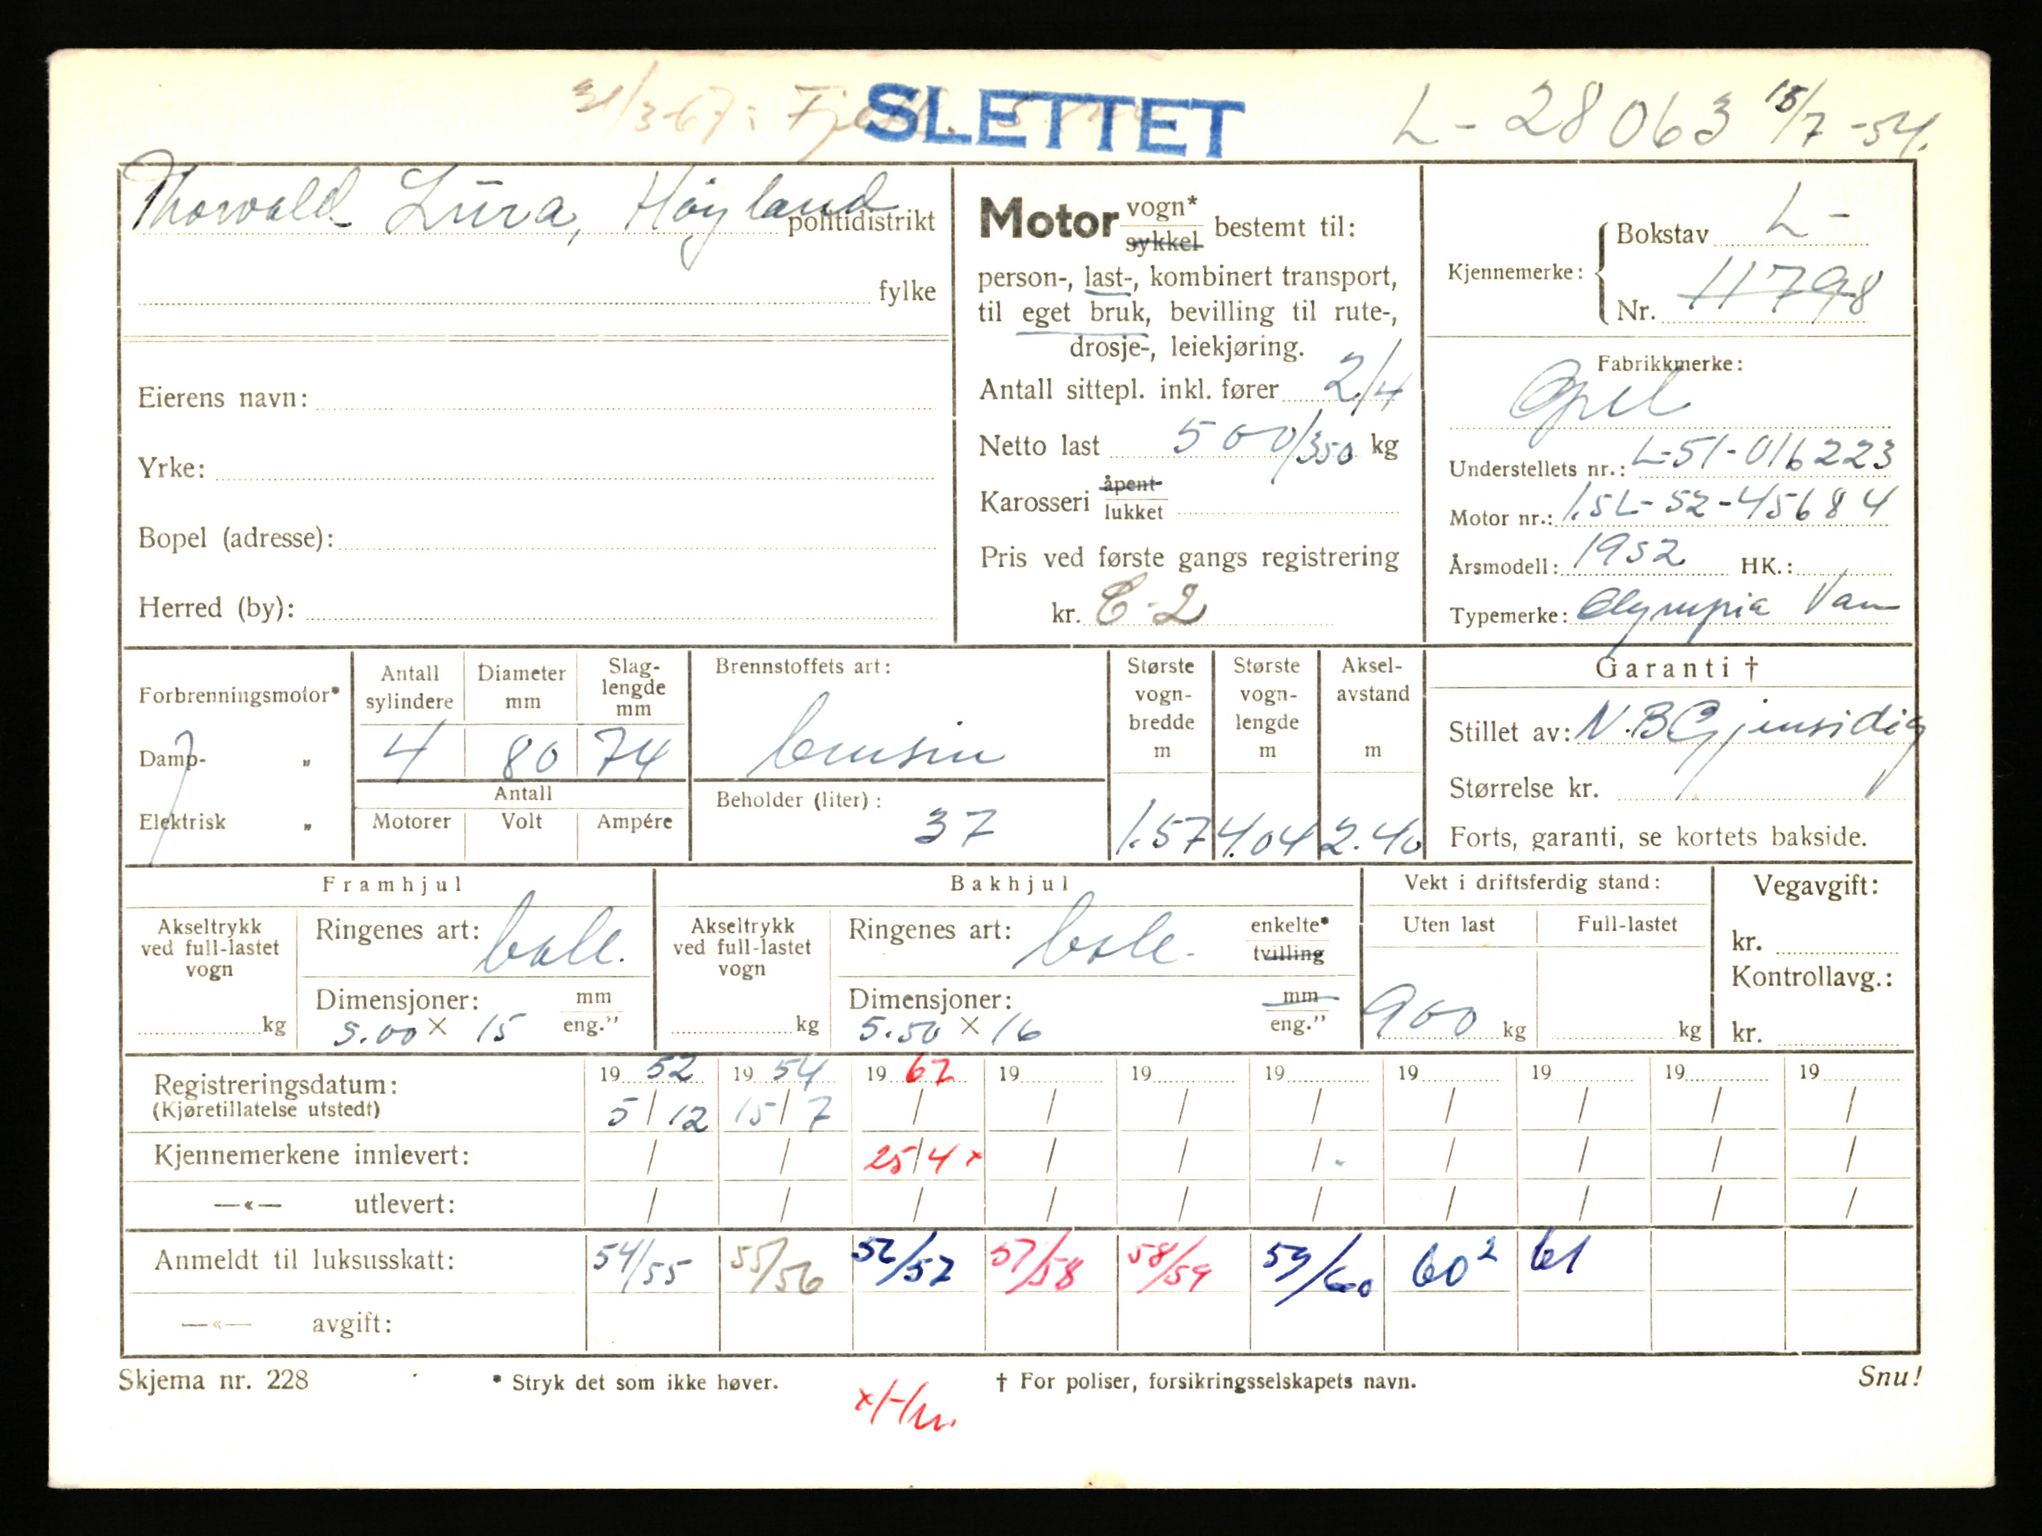 31/3-67: SLETTET L-28063 15/7-54.
Thorvald Lura, Høyland politidistrikt
fylke
Eierens navn:
Yrke:
Bopel (adresse):
Herred (by):
Motor vogn* sykkel bestemt til:
person-, last-, kombinert transport,
til eget bruk, bevilling til rute-,
drosje-, leiekjøring.
Antall sittepl. inkl. fører 2/4
Netto last 500/350 kg
Karosseri åpent lukket
Pris ved første gangs registrering
kr. C-2
Kjennemerke: Bokstav L-
Nr. 11798
Fabrikkmerke:
Opel
Understellets nr.: L-51-016223
Motor nr.: 1.5L-52-45684
Årsmodell: 1952 HK.:
Typemerke: Olympia Van
Forbrenningsmotor*
Damp- "
Elektrisk "
Antall sylindere Diameter mm Slag-lengde mm
4 80 74
Antall
Motorer Volt Ampére
Brennstoffets art:
bensin
Beholder (liter):
37
Største vogn-bredde m
1.57
Største vogn-lengde m
4.04
Aksel-avstand m
2.40
Garanti †
Stillet av: N.B Gjensidig
Størrelse kr.
Forts, garanti, se kortets bakside.
Framhjul
Akseltrykk ved full-lastet vogn
kg
Ringenes art: ball.
Dimensjoner: mm eng."
5.00 × 15
Bakhjul
Akseltrykk ved full-lastet vogn
kg
Ringenes art: ball. enkelte* tvilling
Dimensjoner: mm eng."
5.50 × 16
Vekt i driftsferdig stand:
Uten last Full-lastet
900 kg kg
Vegavgift:
kr.
Kontrollavg.:
kr.
Registreringsdatum: 1952 1954 1967 19 19 19 19 19 19 19
(Kjøretillatelse utstedt) 5/12 15/7 / / / / / / / /
Kjennemerkene innlevert: / / 25/4 × / / / / / / /
—«— utlevert: / / / / / / / / / /
Anmeldt til luksusskatt: 54/55 55/56 56/57 57/58 58/59 59/60 60² 61
—«— avgift:
Skjema nr. 228 * Stryk det som ikke høver. † For poliser, forsikringsselskapets navn. Snu!